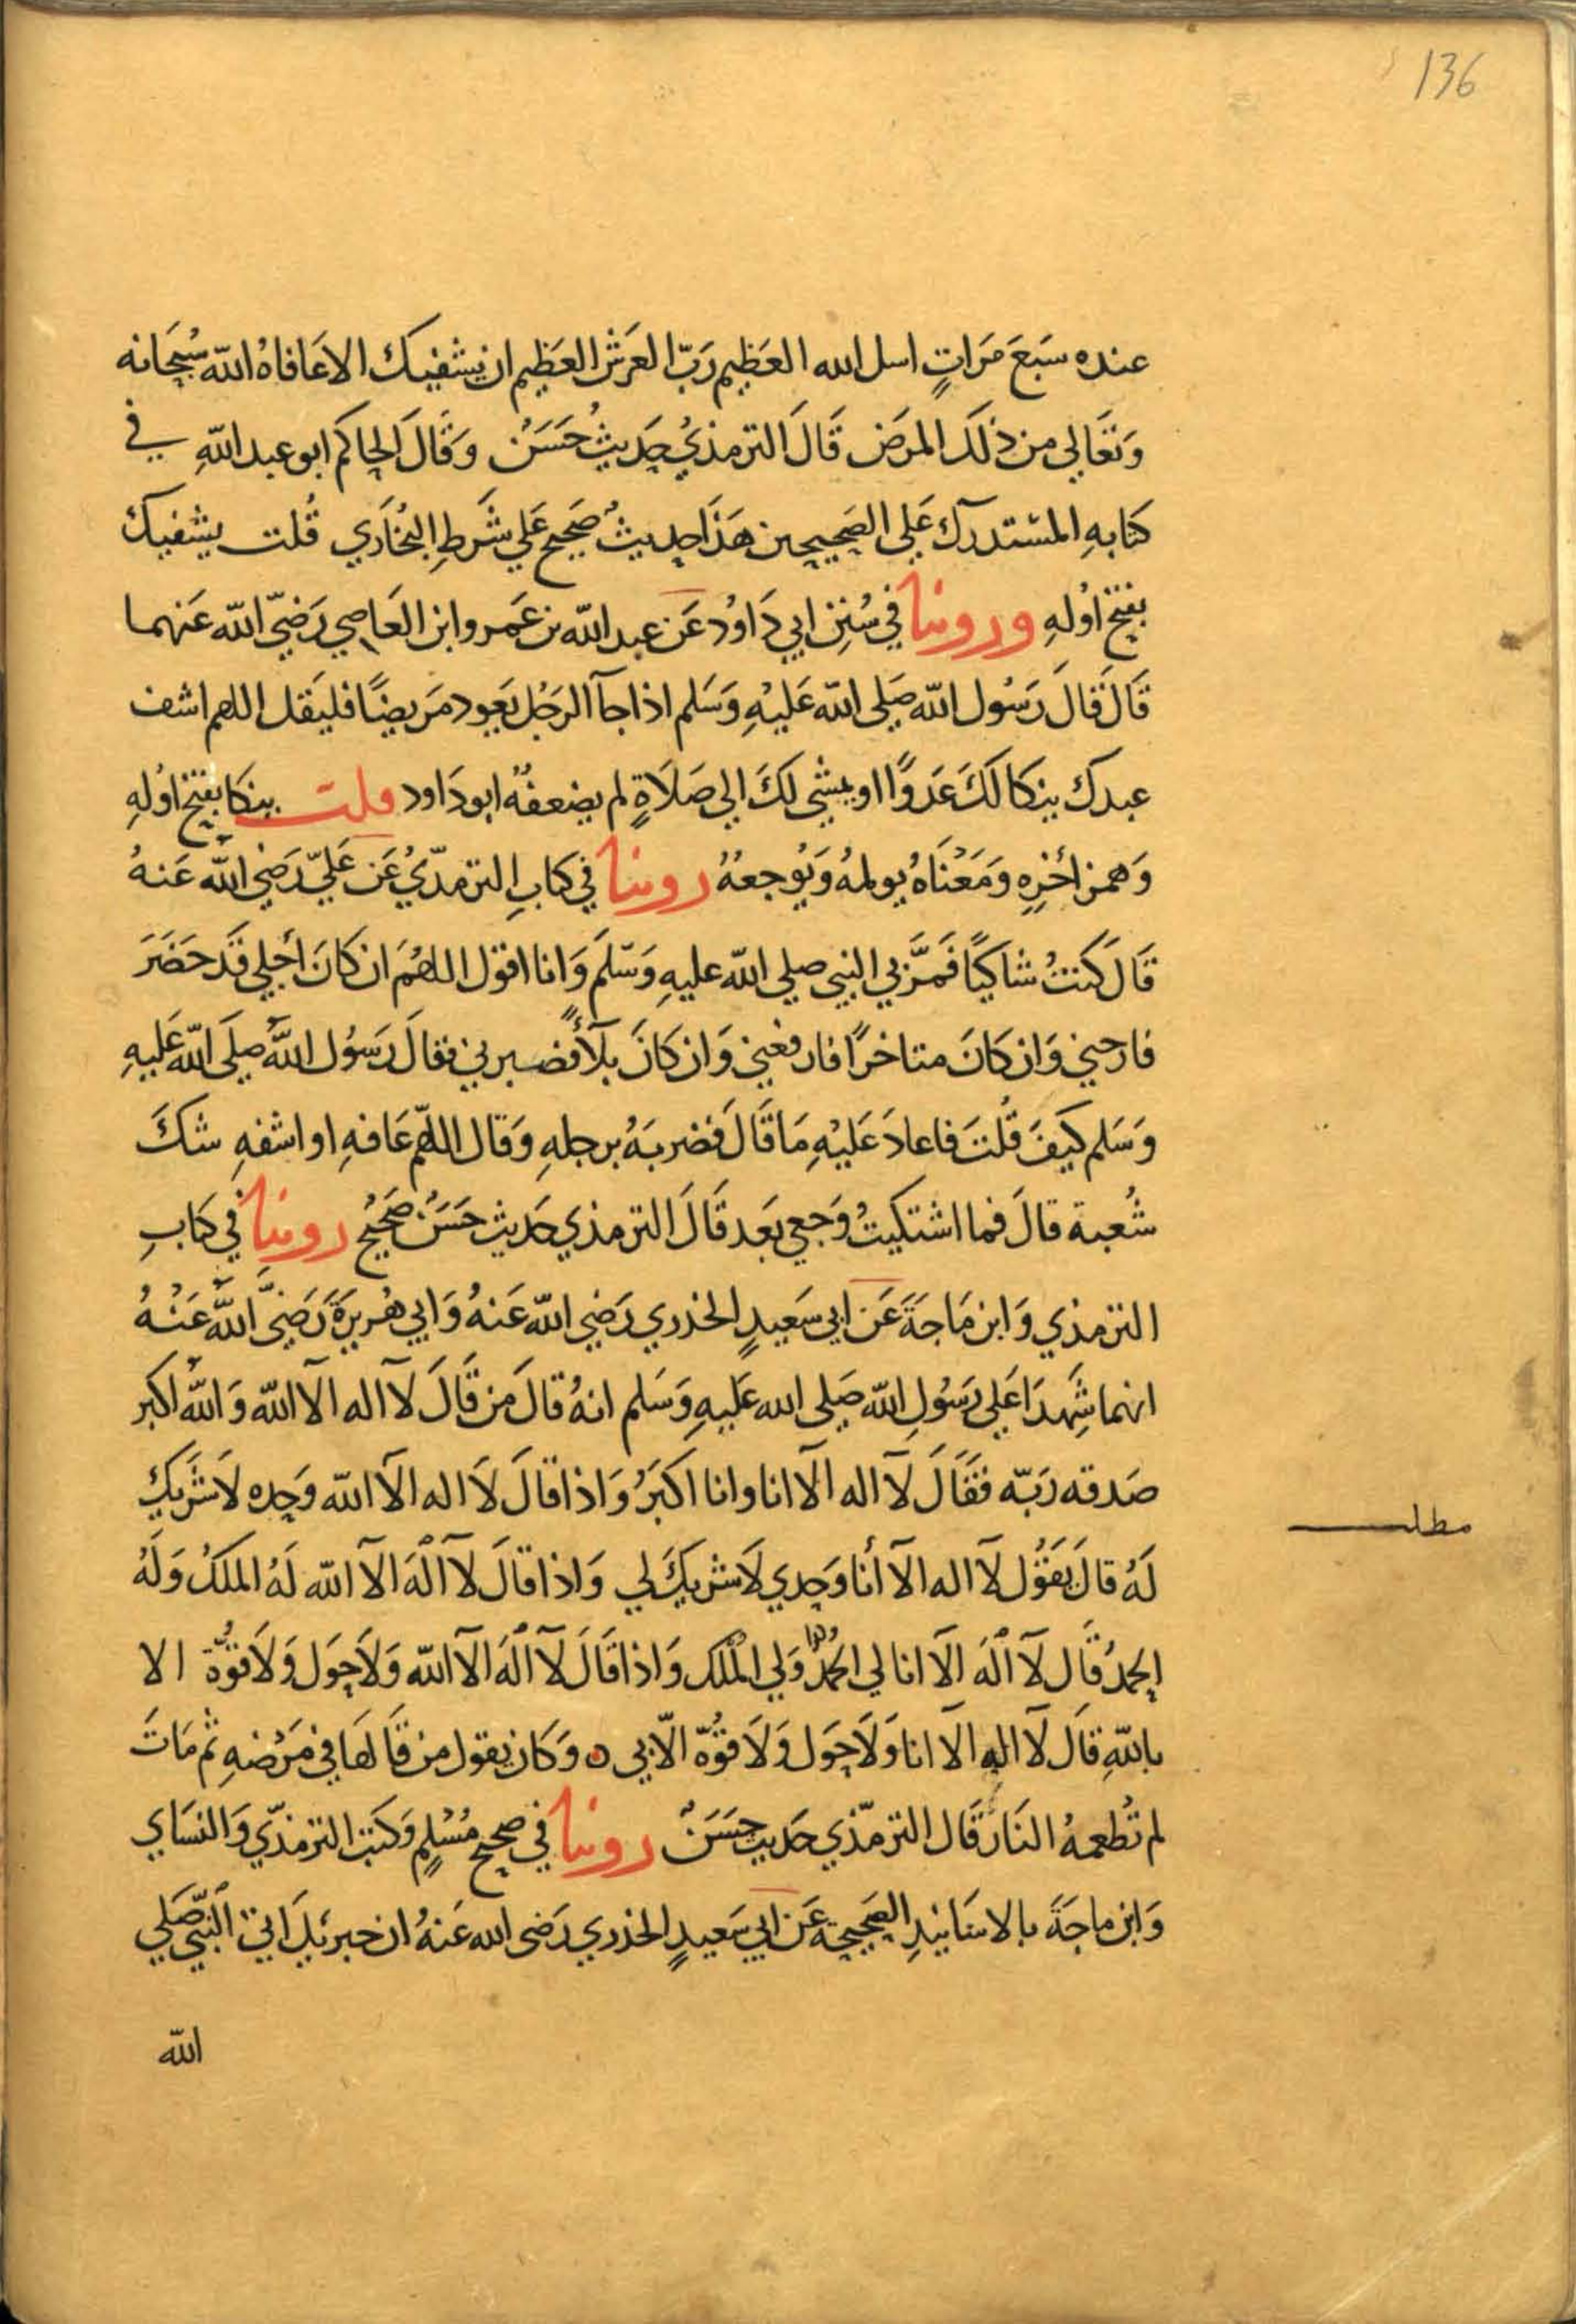 136
عنده سَبعَ مَرَاتٍ اسل الله العَظِيم رَبّ العَرَش العَظِيم ان يشفيك الاعَافاهُ الله سُبحَانه
وَتعَالي من ذلكَ المرَض قَالَ الترمذيُ حَديثُ حَسَنُ وَقَالَ الحاكم ابو عبد اللهِ في
كتابهِ المسْتدرآك عَلي الصَحيحين هَذَا حديثُ صَحيح عَلي شَرطِ البُخَاري قُلت يشفيك
بفتح اوُلهِ وروينا في سُنِن ابي دَاوُد عَن عبد الله بن عَمرو ابن العَاصِي رَضيَ الله عَنهما
قَالَ قالَ رَسُول الله صَلى الله عَليْهِ وَسَلم اذا جآ الرَجُل يَعود مَريضًا فليَقل اللهم اشف
عبدك ينكا لكَ عَدوًا او يمشي لكَ الي صَلاَةٍ لم يضعفهُ ابو دَاود قلت ينكا بفتح اوُلهِ
وَهمز اخٔرِهِ وَمَعْنَاهُ يولمهُ وَيُوجعهُ روينا في كتابِ الترمذّيُ عَن عَليّ رَضيَ الله عَنهُ
قَالَ كنتُ شاكيًا فَمَرَّ بي النبي صلى الله عليهِ وَسَلمَ وَانا اقول اللهُمَ ان كانَ اَجلي قَد حَضَرَ
فارحني وَان كانَ متاخرًا فارفعني وَان كانَ بلآءً فصبرني فقالَ رَسُول اللهَ صلَى الله عَليهِ
وَسَلم كيَفَ قُلتَ فاعادَ عَليْهِ مَا قَالَ فضربَهُ برجلهِ وَقال اللهمّ عَافهِ او اشفهِ شكَ
شُعبة قالَ فما اشتكيتُ وَجعي بَعد قَالَ الترمذي حَديث حَسَنُ صَحيحُ روينا في كتابِ
الترمذي وَابن مَاجَةَ عَن ابي سَعيدٍ الخدري رَضي الله عَنهُ وَابي هُريرَةَ رَضيَ اللهَ عَنْهُ
انهما شَهِدَا عَلي رَسُولِ الله صَلى الله عَليهِ وَسَلم انهُ قالَ مَن قَالَ لآ اله الآ الله وَاللهُ اكبر
صَدقه رَبّه فقَالَ لآ اله الآ انا وانا اكبَرُ وَاذا قالَ لآ اله الآ الله وَحده لاَ شَريك
لَهُ قالَ يَقوُل لآ اله الآ أنا وَحدي لاَ شريكَ لي وَاذا قالَ لآ الَه الآ الله لَهُ الملكُ وَلَهُ
الحمدُ قَال لآ الَه الآ انا لي الحمدُ وَلي المُلك وَاذا قَالَ لآ الَه الآ الله وَلاَ حَول وَلاَ قوُّة الا
باللهِ قالَ لآ الهِ الآ انا وَلاَ حَول وَلاَ قوُّة الاّ بي ٥ وَكان يقول من قَالهَا في مَرْضهِ ثم مَاتَ
لم تُطعمهُ النَارُ قَال الترمذّي حَديث حَسَنُ روينا في صحيح مُسْلِمٍ وَكتَب الترمذّي وَالنسَاي
وَابن ماجَةَ بالاسَانيدِ الصَحيحَة عَن ابي سَعيدٍ الخدري رَضى الله عَنهُ ان جبريَل اتي النَبيّ صَلي
الله
مطلب